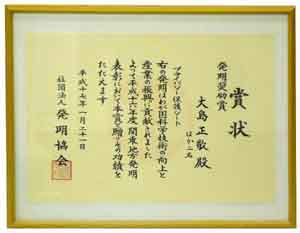 賞状
発明奨励賞
大島正敬殿
ほか二名
プライバシー保護シート
右の発明はわが国科学技術の向上と
産業の振興に貢献されました
よって平成十六年度関東地方発明
表彰において本賞を贈りその功績を
たたえます
平成十七年一月二十一日
社団法人 発明協会